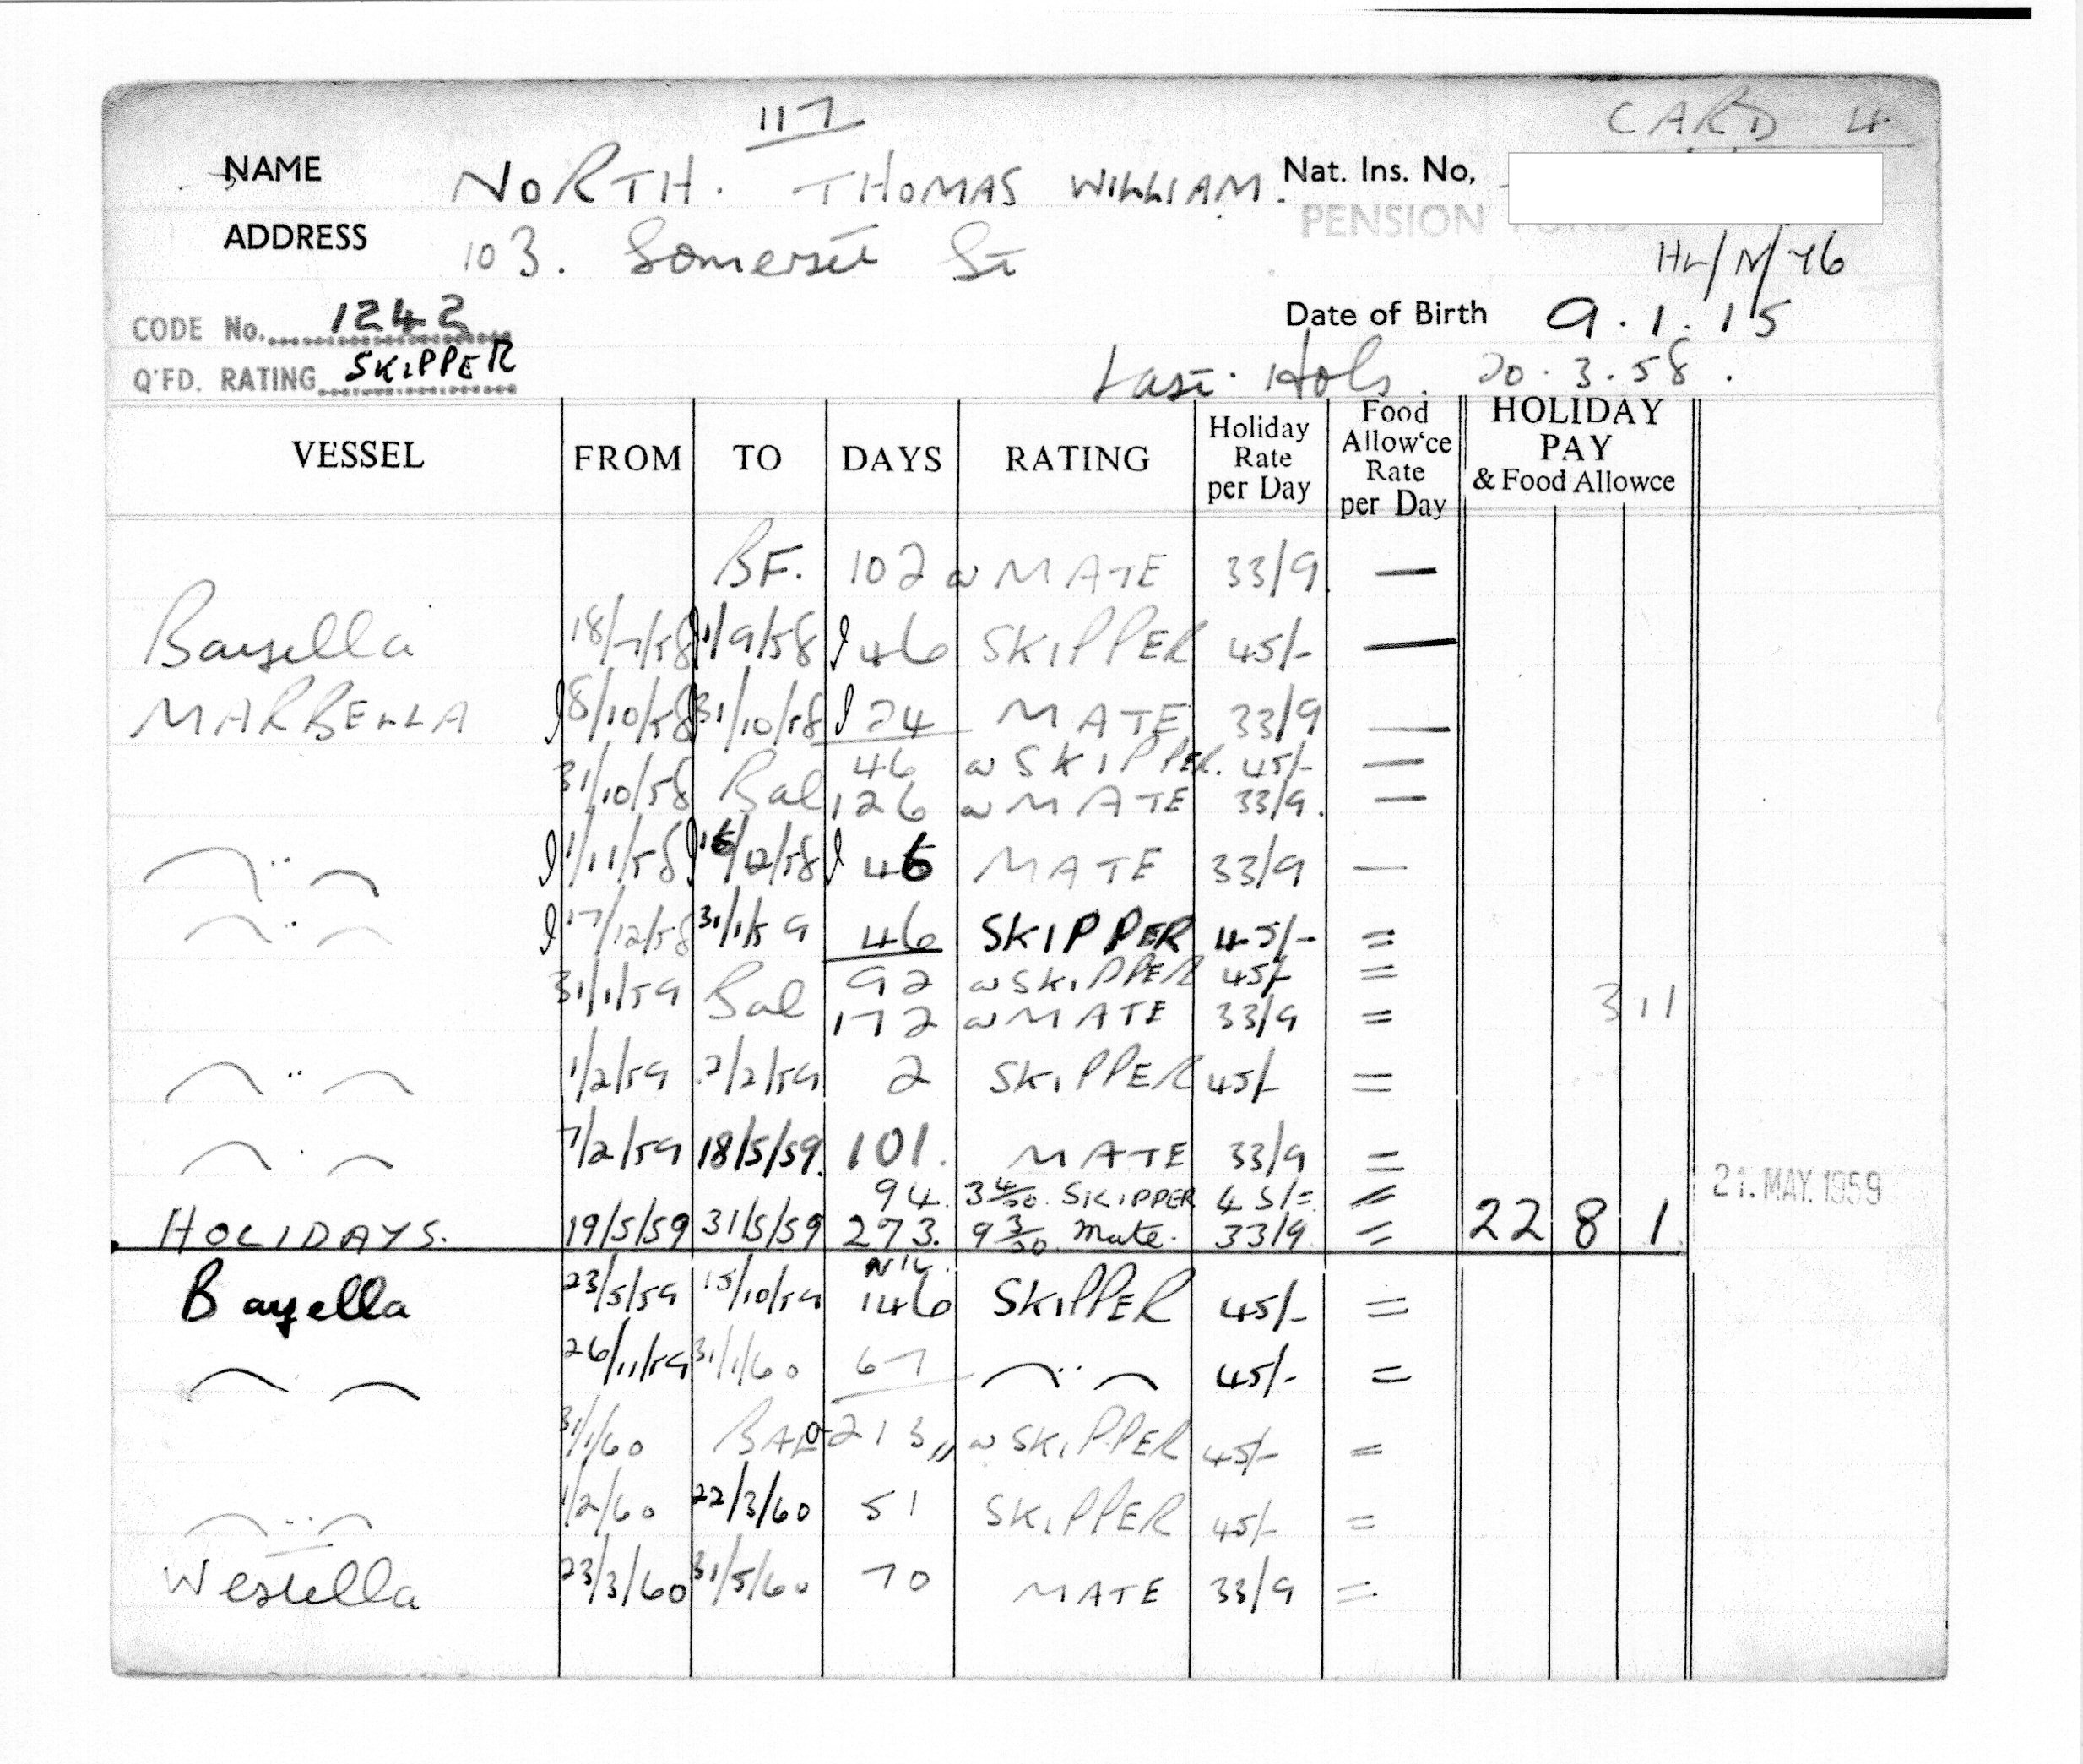 117
CARD 4
NAME NORTH. THOMAS WILLIAM. Nat. Ins. No,
PENSION FUND
ADDRESS 103. Somerset St
HL/N/76
CODE No. 1242
Date of Birth 9.1.15
Q'FD. RATING SKIPPER
Last Hols. 20.3.58.
VESSEL FROM TO DAYS RATING Holiday Rate per Day Food Allow'ce Rate per Day HOLIDAY PAY & Food Allowce
BF. 102 @ MATE 33/9 —
Bayella 18/7/58 1/9/58 46 SKIPPER 45/- —
MARBELLA 8/10/58 31/10/58 24 MATE 33/9 —
46 @ SKIPPER. 45/- —
31/10/58 Bal 126 @ MATE 33/9. —
" 1/11/58 16/12/58 46 MATE 33/9 —
" 17/12/58 31/1/59 46 SKIPPER 45/- =
92 @ SKIPPER 45/- =
31/1/59 Bal 172 @ MATE 33/9 = 311
" 1/2/59 2/2/59 2 SKIPPER 45/- =
" 7/2/59 18/5/59. 101. MATE 33/9 =
94. 3 4/30. SKIPPER 45/= = 21. MAY. 1959
HOLIDAYS. 19/5/59 31/5/59 273. 9 3/30 Mate. 33/9 = 22 8 1.
NIL.
Bayella 23/5/59 15/10/59 146 SKIPPER 45/- =
" 26/11/59 31/1/60 67 " 45/- =
31/1/60 BAL 213 @ SKIPPER 45/- =
" 1/2/60 22/3/60 51 SKIPPER 45/- =
Westella 23/3/60 31/5/60 70 MATE 33/9 =